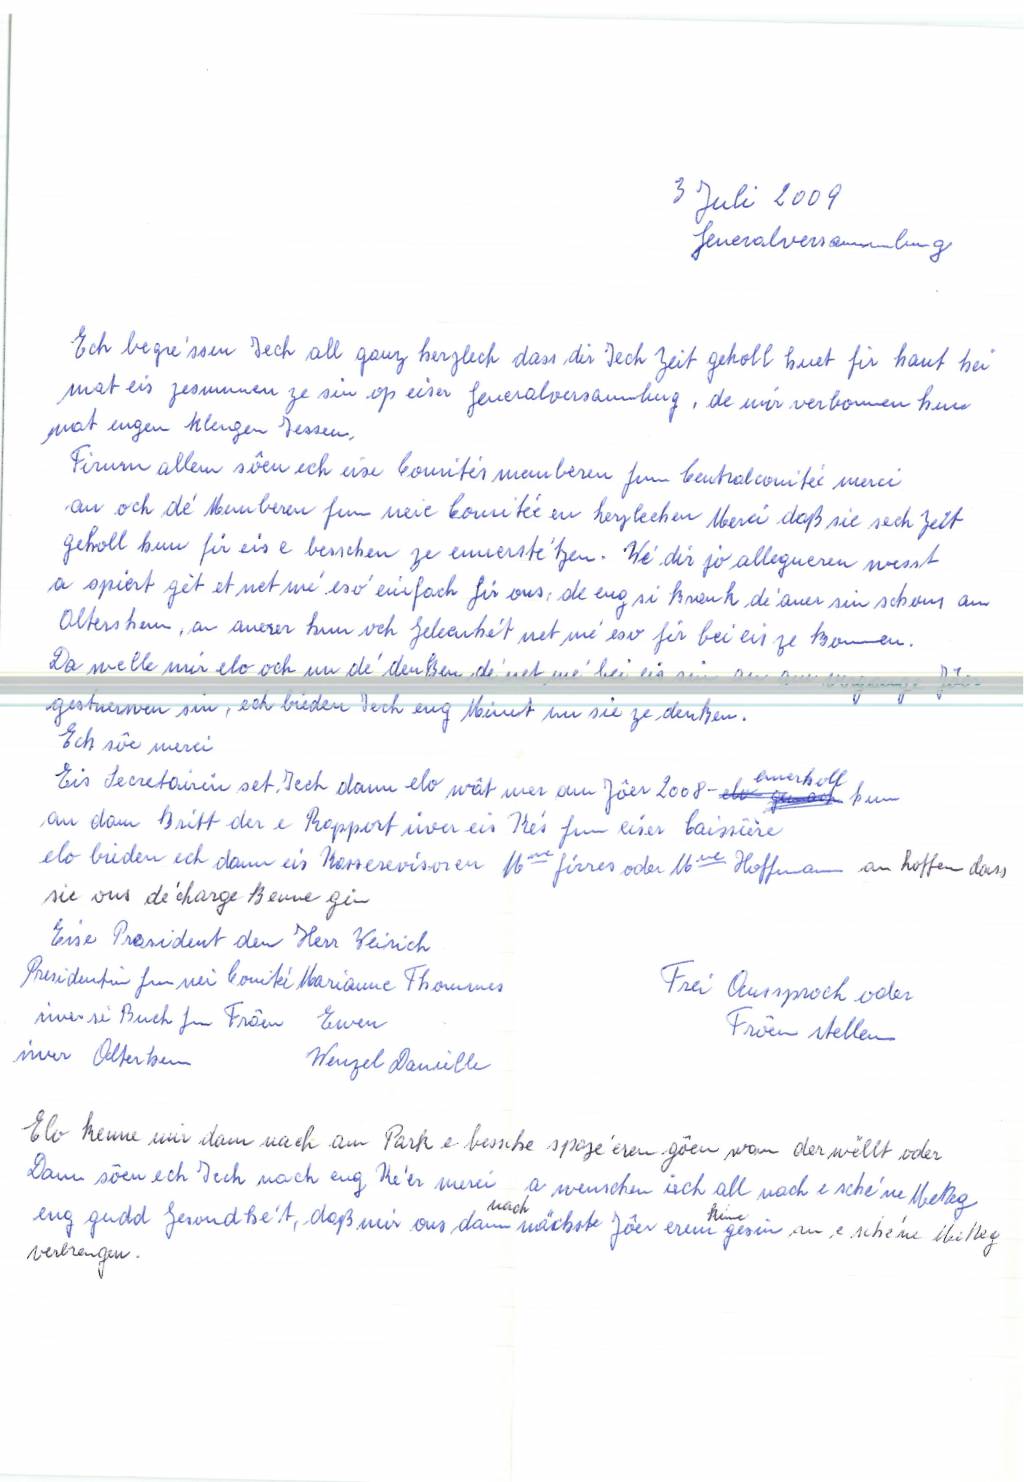 3 Juli 2009
Generalversammlung
Ech begre'ssen Iech all ganz herzlech dass dir Iech Zeit geholl huet fir haut hei
mat eis zesummen ze sin op eiser Generalversammlung, de mir verbonnen hun
mat engem klengen Iessen.
Firum allem sôen ech eise Comités memberen fum Centralcomité merci
an och dé Memberen fum neie Comitée en herzlechen Merci daß sie sech Zeit
geholl hun fir eis e besschen ze ennerste'tzen. We' dir jo allegueren wësst
a spiert gêt et net me' eso' einfach fir ons, de eng si krank de' aner sin schons am
Altershem, an anerer hun och Geleenhe't net me' eso fir bei eis ze kommen.
Da welle mir elo och un de' denken, de' net me' bei eis sin an am vergangene Jôer
gestuerwen sin, ech bieden Iech eng Minut un sie ze denken.
Ech sôe merci
Eis Secretairin set Iech dann elo wât mer am Jôer 2008 - ennerholl hun
an dann Britt der e Rapport iwer eis Ke's fun eiser Caissière
elo bieden ech dann eis Kasserevisoren Mme Girres oder Mme Hoffmann an hoffen dass
sie ons de'charge kenne gin
Eise President den Herr Weirich
Presidentin fun nei Comité Marianne Thommes
iwer si Buch fu Frôen Ewen
iwer Altershem Wenzel Danielle
Frei Aussproch oder
Frôen stellen
Elo kenne mir dann nach am Park e bessche spaze'eren gôen wann der wëllt oder
Dann sôen ech Iech nach eng Ke'er merci a wenschen iech all nach e sche'ne Metteg
eng gudd Gesondhe't, daß mir ons dann nach nächste Jôer erem kenne gesin an e sche'ne Metteg
verbrengen.